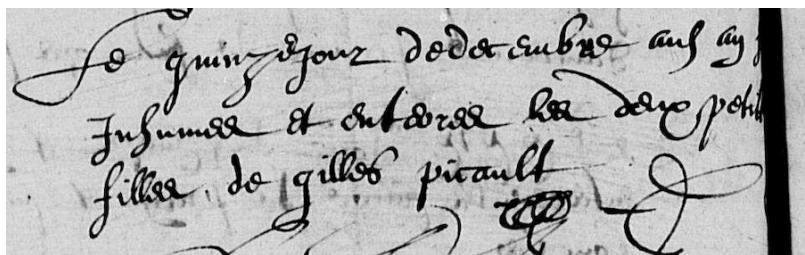 Le quinze jour de decembre ans ay
Inhumees et enterees les deux petit
filles de gilles picault